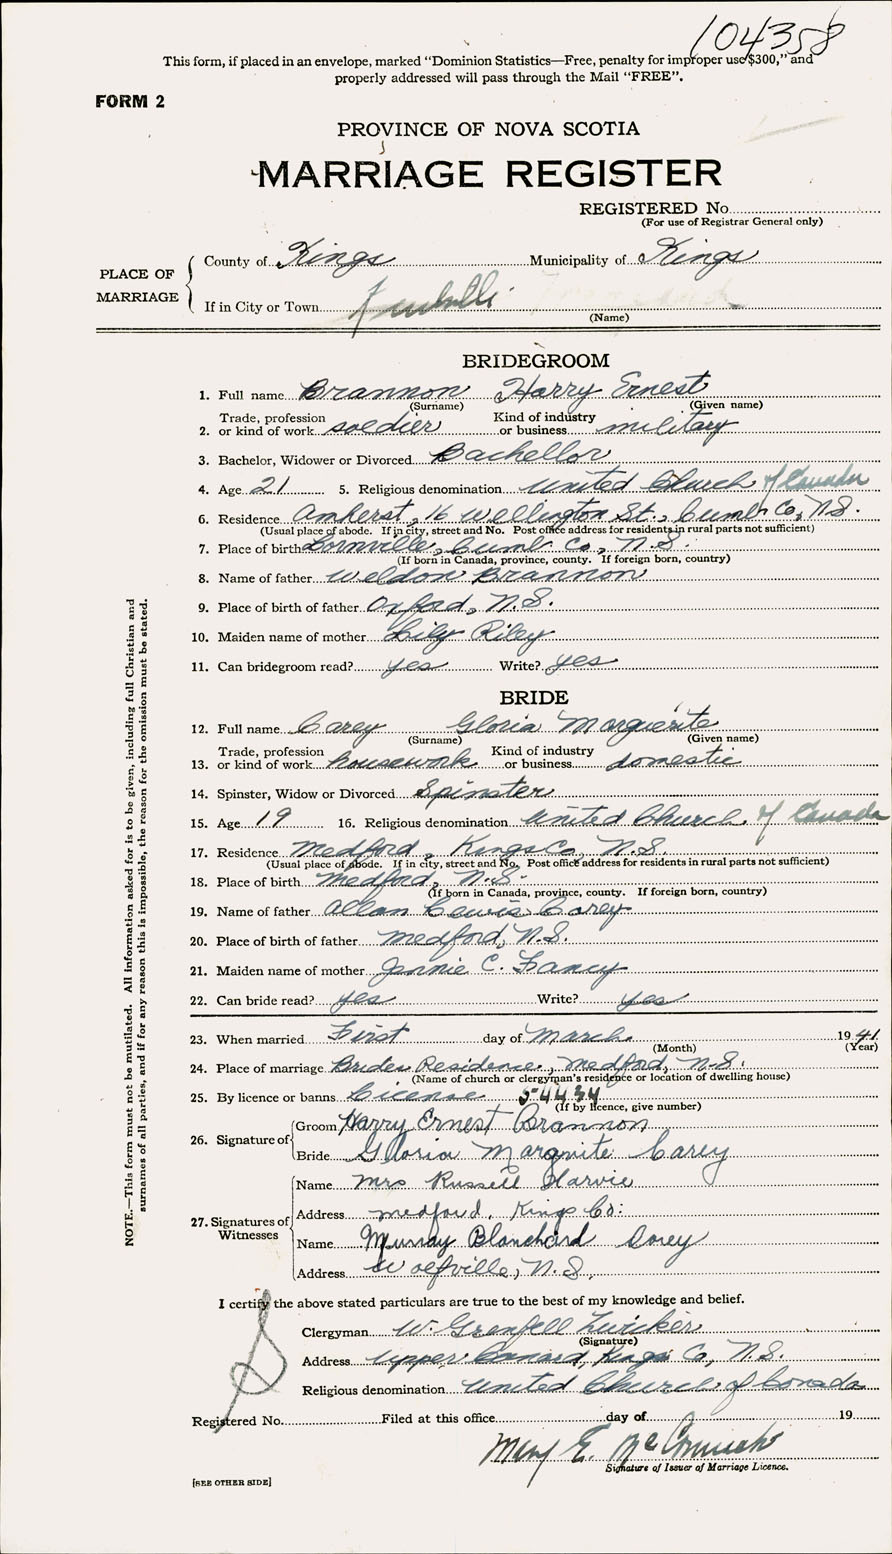 104358
This form, if placed in an envelope, marked “Dominion Statistics—Free, penalty for improper use $300,” and
properly addressed will pass through the Mail “FREE”.
FORM 2
PROVINCE OF NOVA SCOTIA
MARRIAGE REGISTER
REGISTERED No.
(For use of Registrar General only)
PLACE OF MARRIAGE
County of Kings Municipality of Kings
If in City or Town
(Name)
BRIDEGROOM
1. Full name Brannon Harry Ernest
(Surname) (Given name)
2. Trade, profession or kind of work soldier Kind of industry or business military
3. Bachelor, Widower or Divorced Bachellor
4. Age 21 5. Religious denomination United Church of Canada
6. Residence Amherst, 16 Wellington St., Cumb Co, N.S.
(Usual place of abode. If in city, street and No. Post office address for residents in rural parts not sufficient)
7. Place of birth Lornville, Cumb. Co, N.S.
(If born in Canada, province, county. If foreign born, country)
8. Name of father Weldon Brannon
9. Place of birth of father Oxford, N.S.
10. Maiden name of mother Lily Riley
11. Can bridegroom read? yes Write? yes
BRIDE
12. Full name Corey Gloria Marguerite
(Surname) (Given name)
13. Trade, profession or kind of work housework Kind of industry or business domestic
14. Spinster, Widow or Divorced Spinster
15. Age 19 16. Religious denomination United Church of Canada
17. Residence Medford, Kings Co, N.S.
(Usual place of abode. If in city, street and No. Post office address for residents in rural parts not sufficient)
18. Place of birth Medford, N.S.
(If born in Canada, province, county. If foreign born, country)
19. Name of father Allan Lewis Corey
20. Place of birth of father Medford, N.S.
21. Maiden name of mother Jennie C. Fancy
22. Can bride read? yes Write? yes
23. When married First day of March 1941
(Month) (Year)
24. Place of marriage Brides Residence, Medford, N.S.
(Name of church or clergyman's residence or location of dwelling house)
25. By licence or banns License 54434
(If by licence, give number)
26. Signature of Groom Harry Ernest Brannon
Bride Gloria Margurite Corey
27. Signatures of Witnesses
Name Mrs Russell Harvie
Address Medford, Kings Co:
Name Murray Blanchard Corey
Address Wolfville, N.S.
I certify the above stated particulars are true to the best of my knowledge and belief.
Clergyman W. Grenfell Zwicker
(Signature)
Address Upper Canard, Kings Co, N.S.
Religious denomination United Church of Canada
Registered No. Filed at this office day of 19
E. McCormick
Signature of Issuer of Marriage Licence.
[SEE OTHER SIDE]
NOTE.—This form must not be mutilated. All information asked for is to be given, including full Christian and
surnames of all parties, and if for any reason this is impossible, the reason for the omission must be stated.